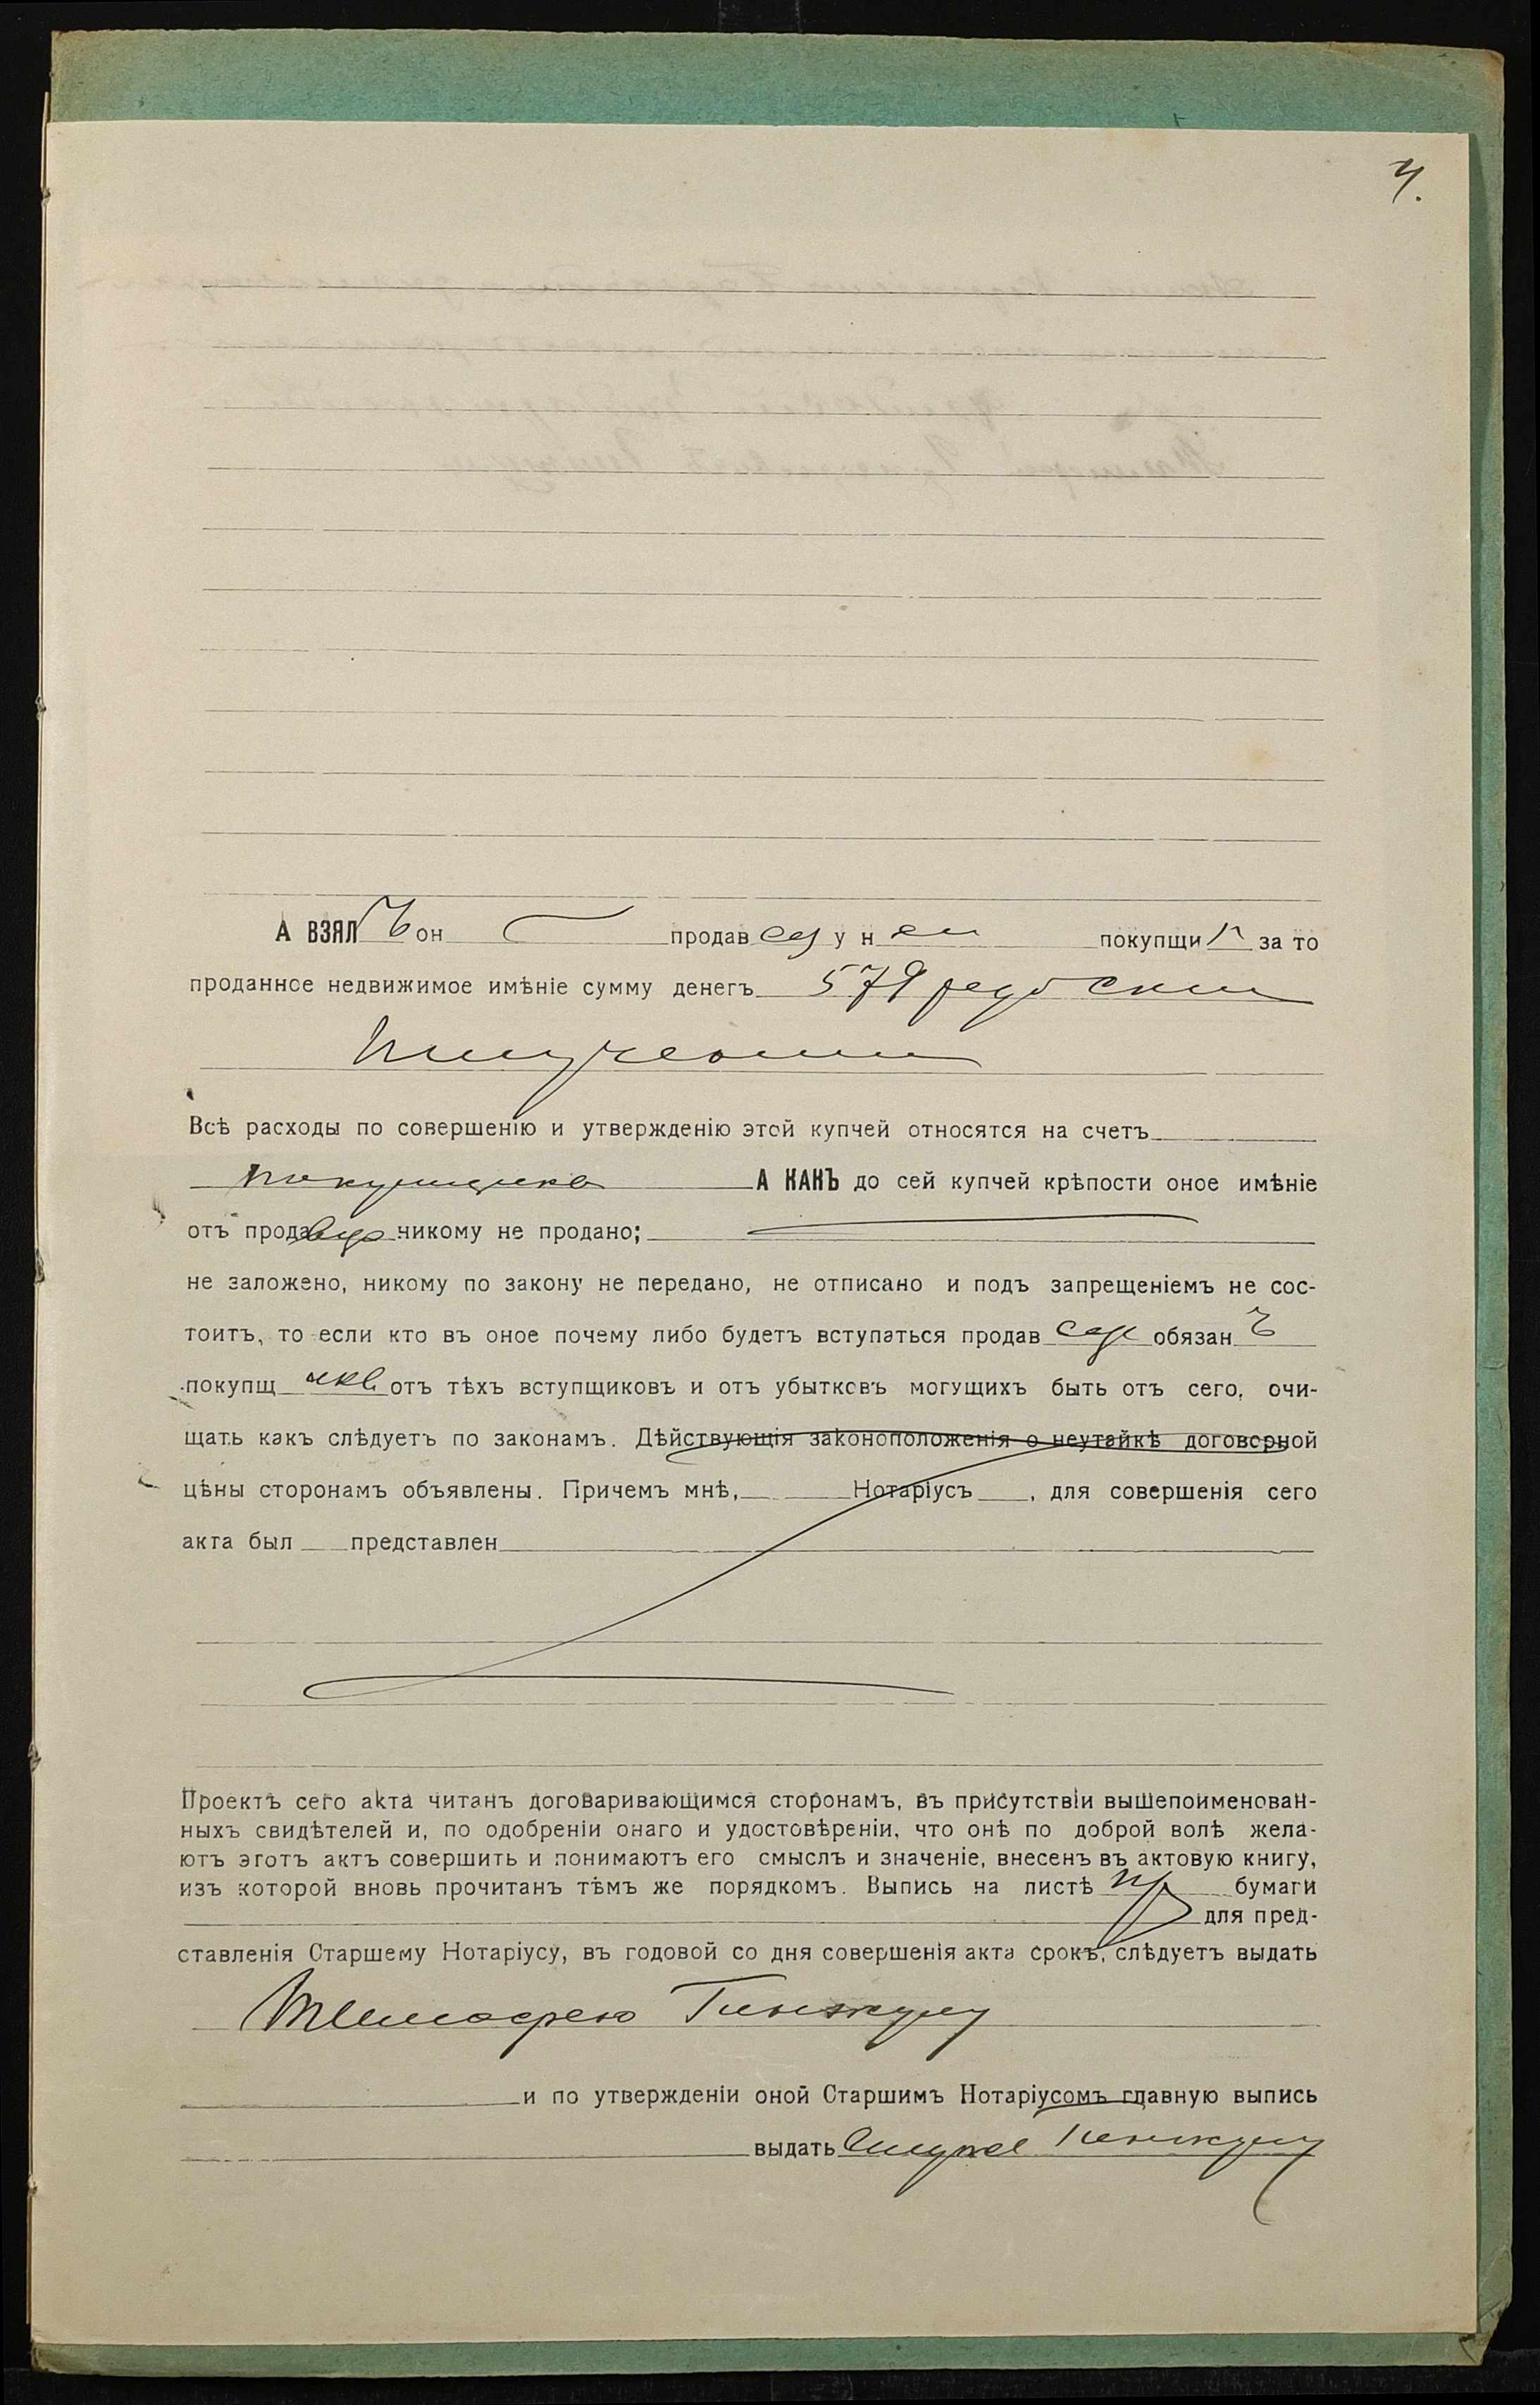 4.
А ВЗЯЛЪ он продавец у н покупщик за то
проданное недвижимое имѣніе сумму денегъ 579 руб
получены
Всѣ расходы по совершенію и утвержденію этой купчей относятся на счетъ
покупщика А КАКЪ до сей купчей крѣпости оное имѣніе
отъ продавца никому не продано;
не заложено, никому по закону не передано, не отписано и подъ запрещеніемъ не сос-
тоитъ, то если кто въ оное почему либо будетъ вступаться продавец обязанъ
покупщика отъ тѣхъ вступщиковъ и отъ убытковъ могущихъ быть отъ сего, очи-
щать какъ слѣдуетъ по законамъ. Дѣйствующія законоположенія о неутайкѣ договорной
цѣны сторонамъ объявлены. Причемъ мнѣ, Нотаріусъ, для совершенія сего
акта был представлен
Проектъ сего акта читанъ договаривающимся сторонамъ, въ присутствіи вышепоименован-
ныхъ свидѣтелей и, по одобреніи онаго и удостовѣреніи, что онѣ по доброй волѣ жела-
ютъ этотъ актъ совершить и понимаютъ его смыслъ и значеніе, внесенъ въ актовую книгу,
изъ которой вновь прочитанъ тѣмъ же порядкомъ. Выпись на листѣ бумаги
для пред-
ставленія Старшему Нотаріусу, въ годовой со дня совершенія акта срокъ, слѣдуетъ выдать
Тимофею Гинжулу
и по утвержденіи оной Старшимъ Нотаріусомъ главную выпись
выдать Гинжулу